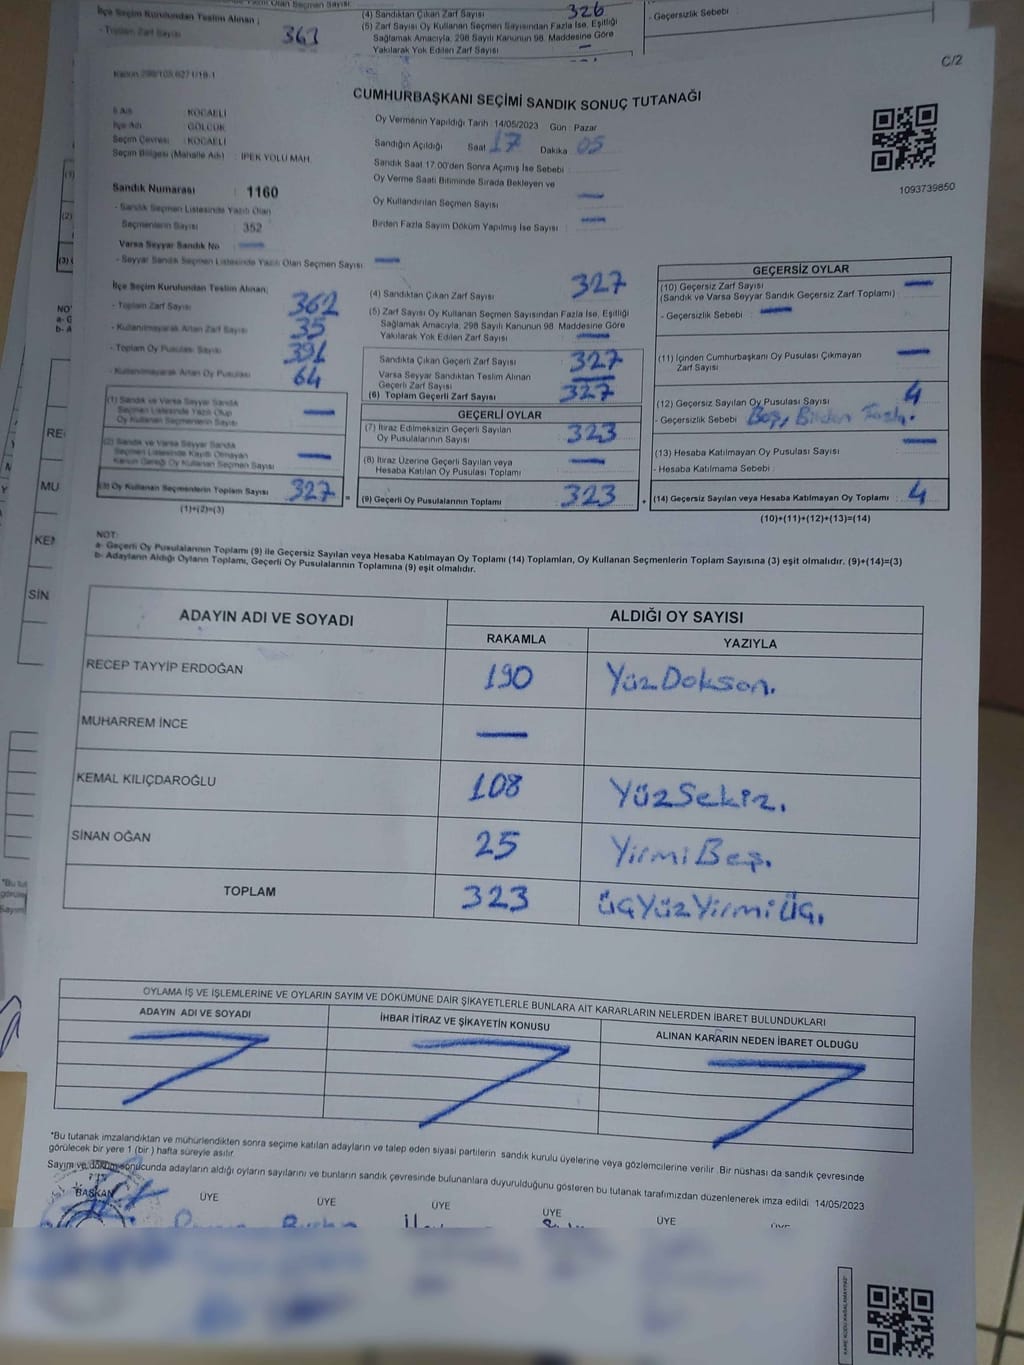 İlçe Seçim Kurulundan Teslim Alınan ;
- Toplam Zarf Sayısı 363
(4) Sandıktan Çıkan Zarf Sayısı 326
(5) Zarf Sayısı Oy Kullanan Seçmen Sayısından Fazla İse, Eşitliği
Sağlamak Amacıyla, 298 Sayılı Kanunun 98. Maddesine Göre
Yakılarak Yok Edilen Zarf Sayısı —
- Geçersizlik Sebebi :
C/2
CUMHURBAŞKANI SEÇİMİ SANDIK SONUÇ TUTANAĞI
İl Adı : KOCAELİ
İlçe Adı : GÖLCÜK
Seçim Çevresi : KOCAELİ
Seçim Bölgesi (Mahalle Adı) : İPEK YOLU MAH.
Sandık Numarası : 1160
- Sandık Seçmen Listesinde Yazılı Olan
Seçmenlerin Sayısı : 352
Varsa Seyyar Sandık No : —
- Seyyar Sandık Seçmen Listesinde Yazılı Olan Seçmen Sayısı : —
Oy Vermenin Yapıldığı Tarih : 14/05/2023 Gün : Pazar
Sandığın Açıldığı Saat 17 Dakika 05
Sandık Saat 17.00'den Sonra Açımış İse Sebebi :
Oy Verme Saati Bitiminde Sırada Bekleyen ve
Oy Kullandırılan Seçmen Sayısı : —
Birden Fazla Sayım Döküm Yapılmış İse Sayısı : —
1093739850
İlçe Seçim Kurulundan Teslim Alınan:
- Toplam Zarf Sayısı : 362
- Kullanılmayarak Artan Zarf Sayısı : 35
- Toplam Oy Pusulası Sayısı : 391
- Kullanılmayarak Artan Oy Pusulası : 64
(1) Sandık ve Varsa Seyyar Sandık
Seçmen Listesinde Yazılı Olup
Oy Kullanan Seçmenlerin Sayısı : —
(2) Sandık ve Varsa Seyyar Sandık
Seçmen Listesinde Kayıtlı Olmayan
Kanun Gereği Oy Kullanan Seçmen Sayısı : —
(3) Oy Kullanan Seçmenlerin Toplam Sayısı : 327 =
(1)+(2)=(3)
(4) Sandıktan Çıkan Zarf Sayısı : 327
(5) Zarf Sayısı Oy Kullanan Seçmen Sayısından Fazla İse, Eşitliği
Sağlamak Amacıyla, 298 Sayılı Kanunun 98. Maddesine Göre
Yakılarak Yok Edilen Zarf Sayısı : —
Sandıkta Çıkan Geçerli Zarf Sayısı : 327
Varsa Seyyar Sandıktan Teslim Alınan
Geçerli Zarf Sayısı : —
(6) Toplam Geçerli Zarf Sayısı : 327
GEÇERLİ OYLAR
(7) İtiraz Edilmeksizin Geçerli Sayılan
Oy Pusulalarının Sayısı : 323
(8) İtiraz Üzerine Geçerli Sayılan veya
Hesaba Katılan Oy Pusulası Toplamı : —
(9) Geçerli Oy Pusulalarının Toplamı : 323 +
GEÇERSİZ OYLAR
(10) Geçersiz Zarf Sayısı : —
(Sandık ve Varsa Seyyar Sandık Geçersiz Zarf Toplamı)
- Geçersizlik Sebebi : —
(11) İçinden Cumhurbaşkanı Oy Pusulası Çıkmayan
Zarf Sayısı : —
(12) Geçersiz Sayılan Oy Pusulası Sayısı : 4
- Geçersizlik Sebebi : Boş, Birden Fazla.
(13) Hesaba Katılmayan Oy Pusulası Sayısı : —
- Hesaba Katılmama Sebebi :
(14) Geçersiz Sayılan veya Hesaba Katılmayan Oy Toplamı : 4
(10)+(11)+(12)+(13)=(14)
NOT:
a- Geçerli Oy Pusulalarının Toplamı (9) ile Geçersiz Sayılan veya Hesaba Katılmayan Oy Toplamı (14) Toplamları, Oy Kullanan Seçmenlerin Toplam Sayısına (3) eşit olmalıdır. (9)+(14)=(3)
b- Adayların Aldığı Oyların Toplamı, Geçerli Oy Pusulalarının Toplamına (9) eşit olmalıdır.
ADAYIN ADI VE SOYADI ALDIĞI OY SAYISI
RAKAMLA YAZIYLA
RECEP TAYYİP ERDOĞAN 190 YüzDoksan.
MUHARREM İNCE —
KEMAL KILIÇDAROĞLU 108 YüzSekiz.
SİNAN OĞAN 25 YirmiBeş.
TOPLAM 323 ÜçYüzYirmiÜç.
OYLAMA İŞ VE İŞLEMLERİNE VE OYLARIN SAYIM VE DÖKÜMÜNE DAİR ŞİKAYETLERLE BUNLARA AİT KARARLARIN NELERDEN İBARET BULUNDUKLARI
ADAYIN ADI VE SOYADI İHBAR İTİRAZ VE ŞİKAYETİN KONUSU ALINAN KARARIN NEDEN İBARET OLDUĞU
*Bu tutanak imzalandıktan ve mühürlendikten sonra seçime katılan adayların ve talep eden siyasi partilerin sandık kurulu üyelerine veya gözlemcilerine verilir .Bir nüshası da sandık çevresinde
görülecek bir yere 1 (bir ) hafta süreyle asılır.
Sayım ve döküm sonucunda adayların aldığı oyların sayılarını ve bunların sandık çevresinde bulunanlara duyurulduğunu gösteren bu tutanak tarafımızdan düzenlenerek imza edildi 14/05/2023
BAŞKAN ÜYE ÜYE ÜYE ÜYE ÜYE